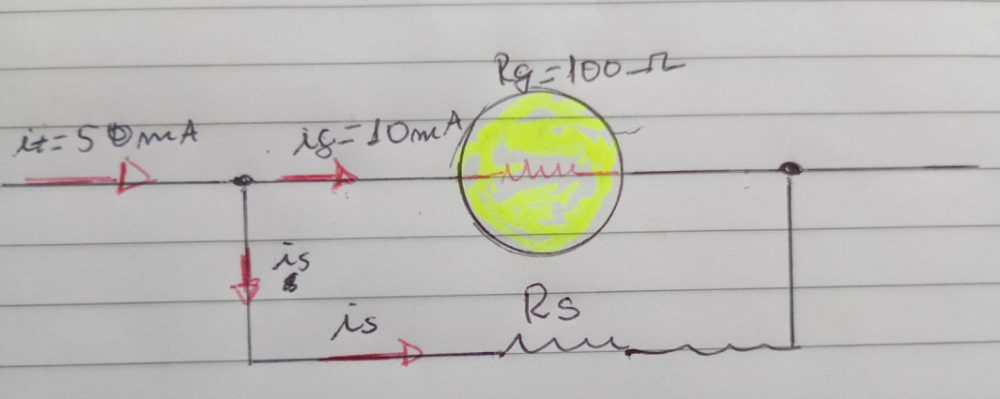 Rg=100Ω
it=50mA
ig=10mA
is
Rs
is